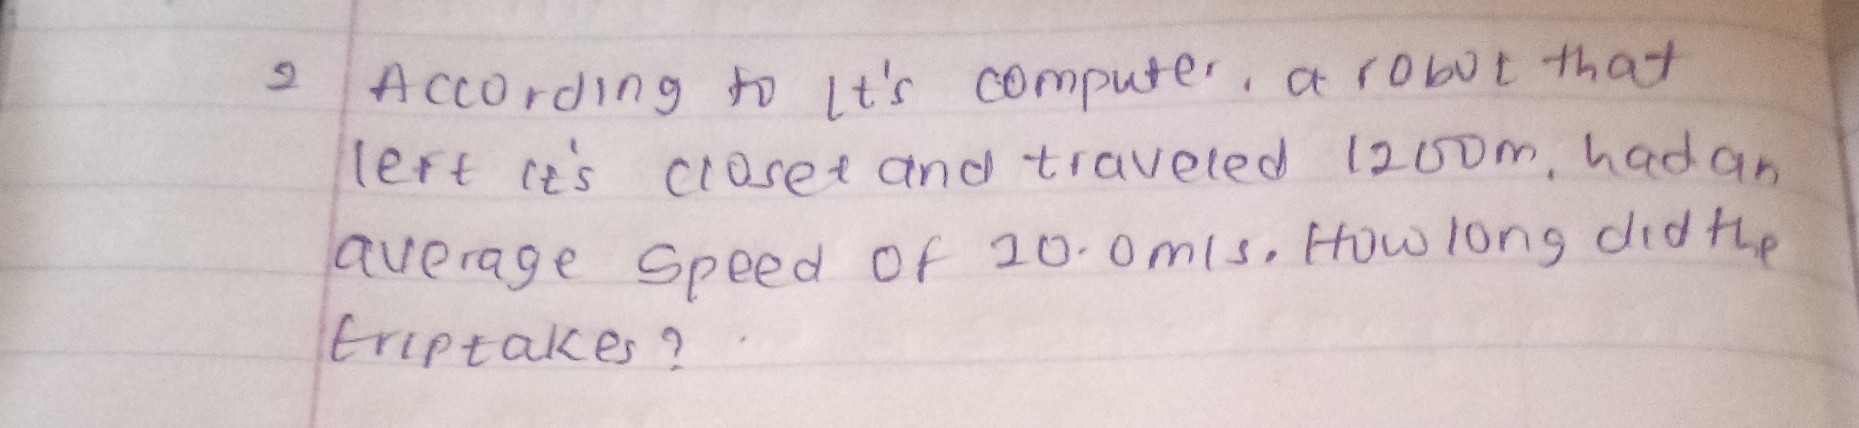 2 According to It's computer, a robot that
left it's closet and traveled 1200m, had an
average speed of 20.0m/s. How long did the
trip takes?